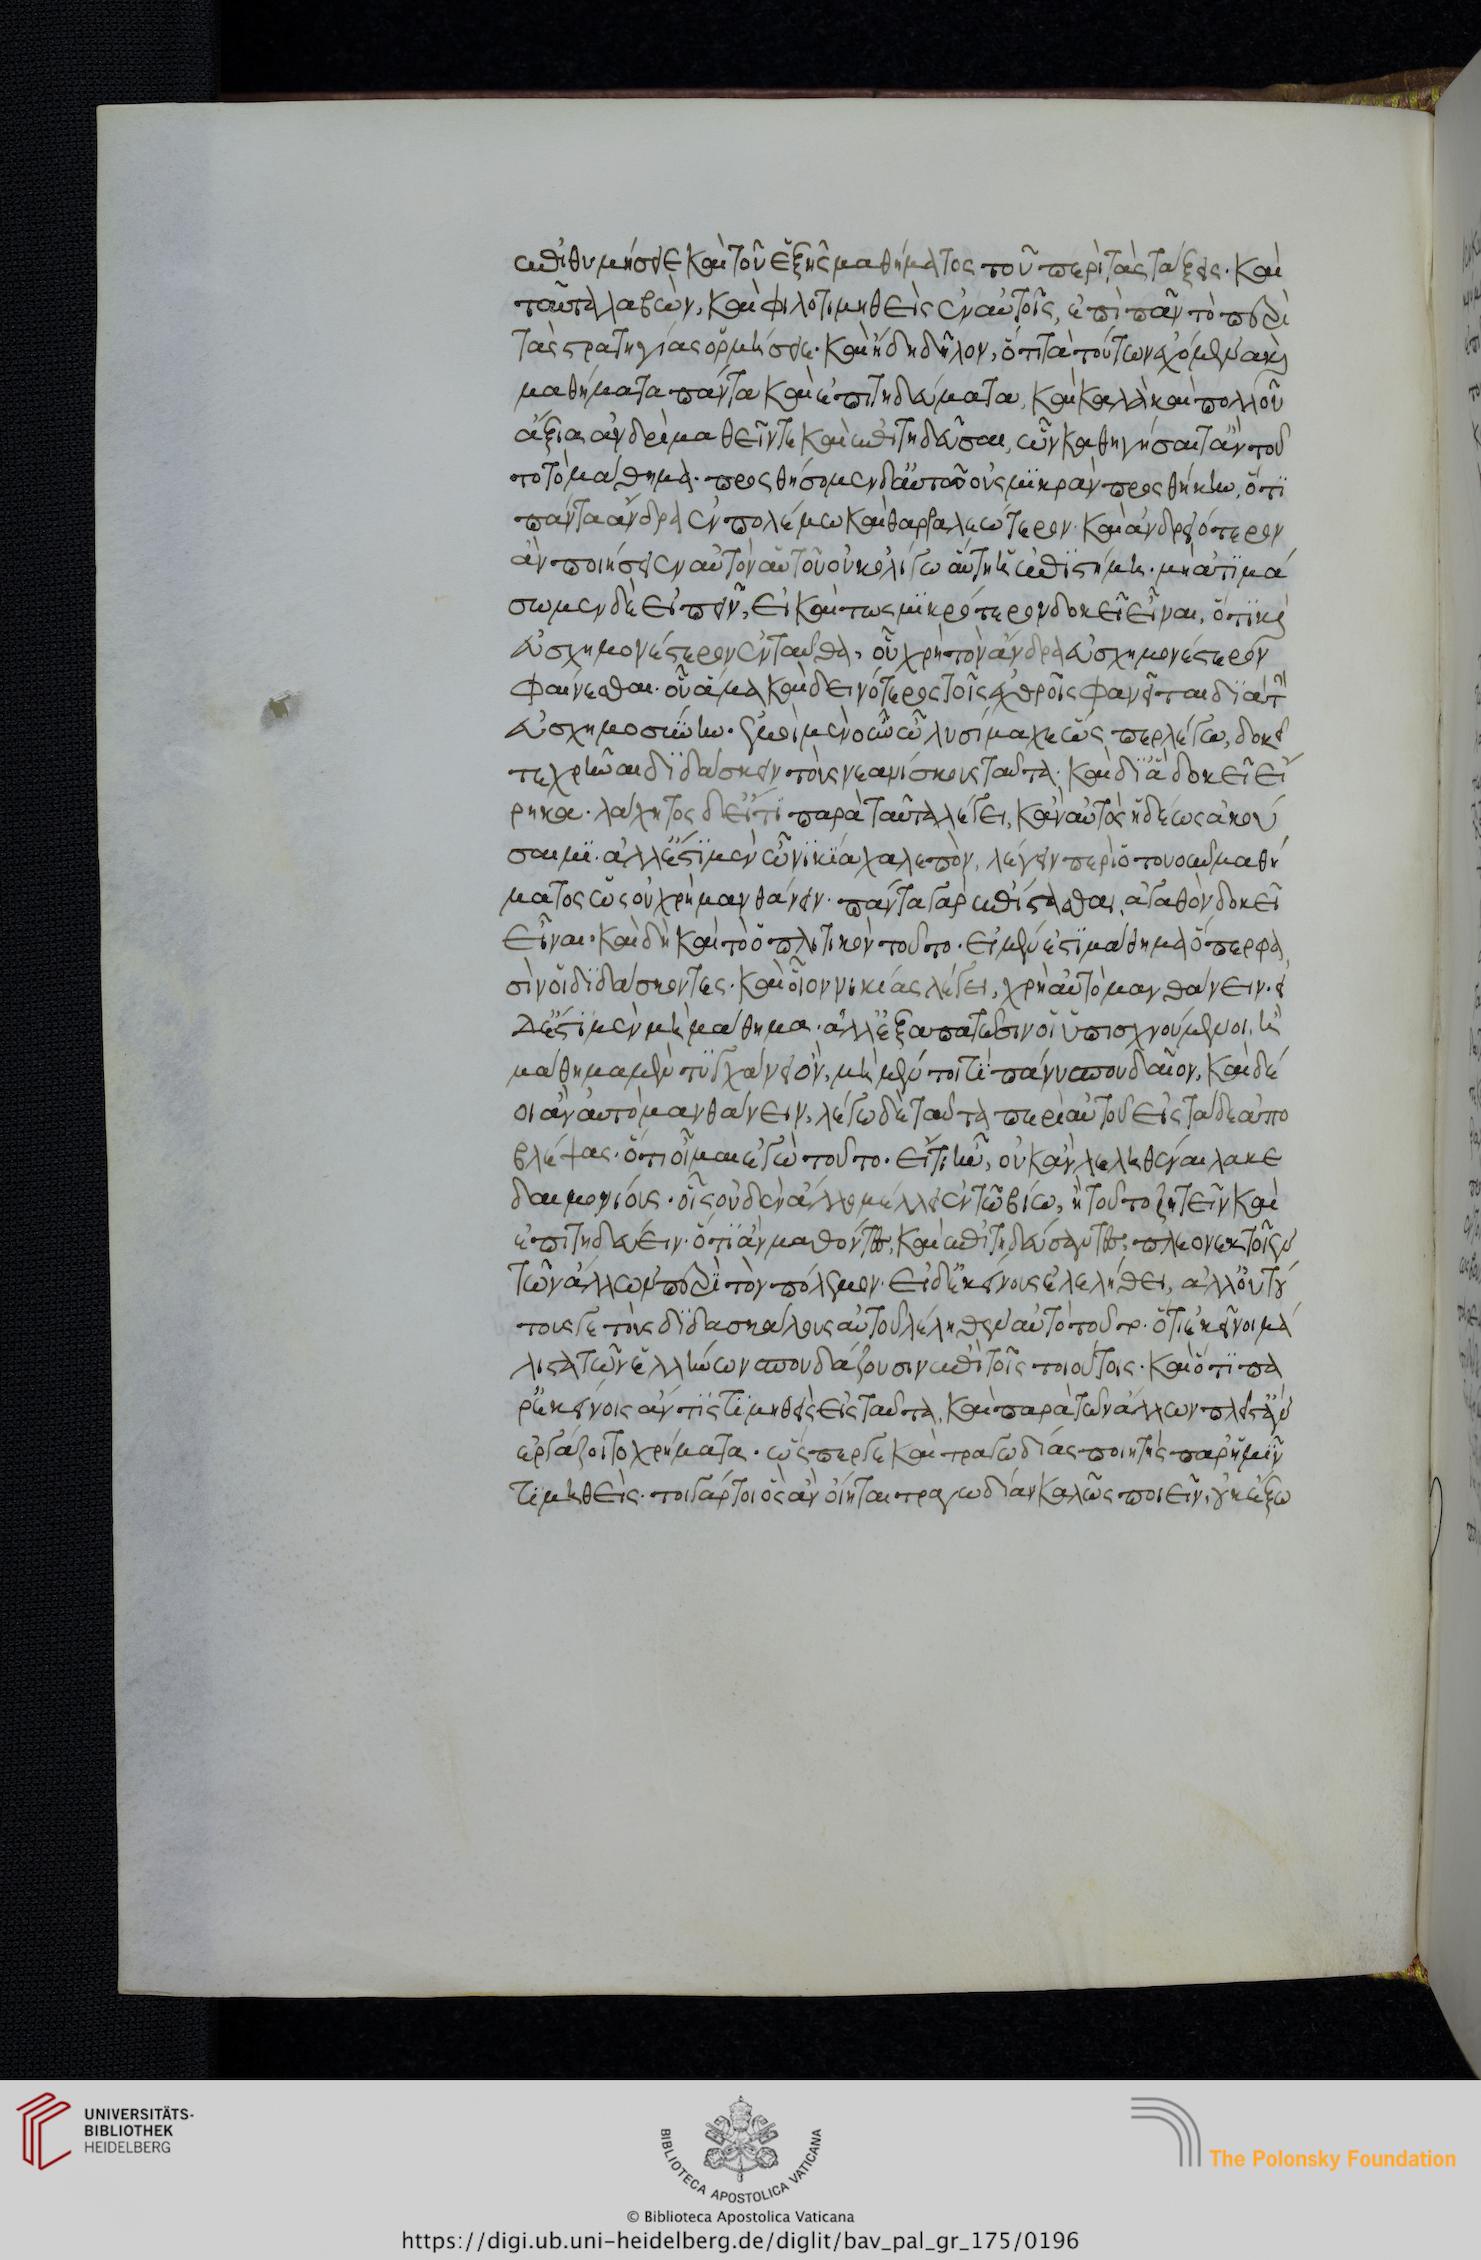 ἐπιθυμήσειε καὶ τοῦ ἑξῆς μαθήματος τοῦ περὶ τὰς τάξεις· καὶ
ταῦτα λαβὼν, καὶ φιλοτιμηθεὶς ἐν αὐτοῖς, ἐπὶ πᾶν τὸ περὶ
τὰς στρατηγίας ὁρμήσειε· καὶ ἤδη δῆλον, ὅτι τὰ τούτων ἐχόμενα καὶ
μαθήματα πάντα καὶ ἐπιτηδεύματα, καὶ καλὰ καὶ πολλοῦ
ἄξια ἀνδρὶ μαθεῖν τε καὶ ἐπιτηδεῦσαι, ὧν καθηγήσαιτ' ἂν τοῦ
το τὸ μάθημα· προσθήσομεν δ' αὐτῶ οὐ σμϊκρὰν προσθήκην, ὅτϊ
πάντα ἄνδρα ἐν πολέμω καὶ θαρραλεώτερον καὶ ἀνδρειότερον
ἂν ποιήσειεν αὐτὸν αὑτοῦ οὐκ ὀλίγω αὕτη ἡ ἐπϊστήμη· μὴ ἀτϊμά
σωμεν δὲ εἰπεῖν, εἰ καί τω σμϊκρότερον δοκεῖ εἶναι, ὅτϊ καὶ
εὐσχημονέστερον ἐνταῦθα, οὗ χρὴ τὸν ἄνδρα εὐσχημονέστερον
φαίνεσθαι· οὗ ἅμα καὶ δεινότερος τοῖς ἐχθροῖς φανεῖται διὰ τὴν
εὐσχημοσύνην· ἐμοὶ μὲν οὖν ὦ λυσίμαχε ὥσπερ λέγω, δοκεῖ
τε χρῆναι διδάσκειν τοὺς νεανίσκους ταῦτα· καὶ δϊ' ἃ δοκεῖ εἴ
ρηκα· λάχητος δ' εἴ τϊ παρὰ ταῦτα λέγει, κἂν αὐτὸς ἡδέως ἀκού
σαιμϊ· ἀλλ' ἔστϊ μὲν ὦ νϊκία χαλεπὸν, λέγειν περὶ ὁτουοῦν μαθή
ματος ὡς οὐ χρὴ μανθάνειν· πάντα γὰρ ἐπίστασθαι, ἀγαθὸν δοκεῖ
εἶναι· καὶ δὴ καὶ τὸ ὁπλιτικὸν τοῦτο· εἰ μέν ἐστϊ μάθημα ὅπερ φα
σὶν οἱ διδάσκοντες· καὶ οἷον νικίας λέγει, χρὴ αὐτὸ μανθάνειν· εἰ
δ' ἔστϊ μὲν μὴ μάθημα· ἀλλ' ἐξαπατῶσιν οἱ ὑπισχνούμενοι, ἢ
μάθημα μὲν τυγχάνει ὂν, μὴ μέν τοι τϊ πάνυ σπουδαῖον, καὶ δέ
οι ἂν αὐτὸ μανθάνειν, λέγω δὲ ταῦτα περὶ αὐτοῦ εἰς τάδε ἀπο
βλέψας· ὅτι οἶμαι ἐγὼ τοῦτο· εἴ τι ἦν, οὐκ ἂν λεληθέναι λακε
δαιμονίους· οἷς οὐδὲν ἄλλο μέλλει ἐν τῶ βίω, ἢ τοῦτο ζητεῖν καὶ
ἐπιτηδεύειν· ὅτϊ ἂν μαθόντες, καὶ ἐπιτηδεύσαντες, πλεονεκτοῖεν
τῶν ἄλλων περὶ τὸν πόλεμον· εἰ δ' ἐκείνους ἐλελήθει, ἀλλ' οὐ τού
τους γε τοὺς διδασκάλους αὐτοῦ λέληθεν αὐτὸ τοῦτο· ὅτι ἐκεῖνοι μά
λιστα τῶν ἑλλήνων σπουδάζουσιν ἐπὶ τοῖς τοιούτοις· καὶ ὅτϊ πα
ρ' ἐκείνοις ἄν τϊς τϊμηθεὶς εἰς ταῦτα, καὶ παρὰ τῶν ἄλλων πλεῖστ' ἂν
ἐργάζοιτο χρήματα· ὥσπερ γε καὶ τραγωδίας ποιητὴς παρ' ἡμῖν
τϊμηθείς· τοιγάρτοι ὃς ἂν οἴηται τραγωδίαν καλῶς ποιεῖν, οὐκ ἔξω
UNIVERSITÄTS-
BIBLIOTHEK
HEIDELBERG
BIBLIOTECA APOSTOLICA VATICANA
The Polonsky Foundation
© Biblioteca Apostolica Vaticana
https://digi.ub.uni-heidelberg.de/diglit/bav_pal_gr_175/0196